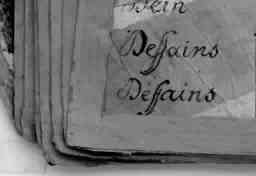 Dein
Deſſains
Deſſains